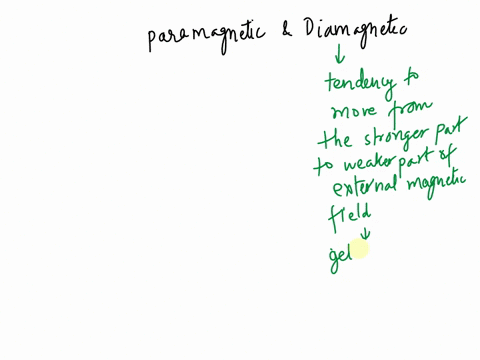 paramagnetic & Diamagnetic
↓
tendency to
move from
the stronger part
to weaker part of
external magnetic
field
↓
gel